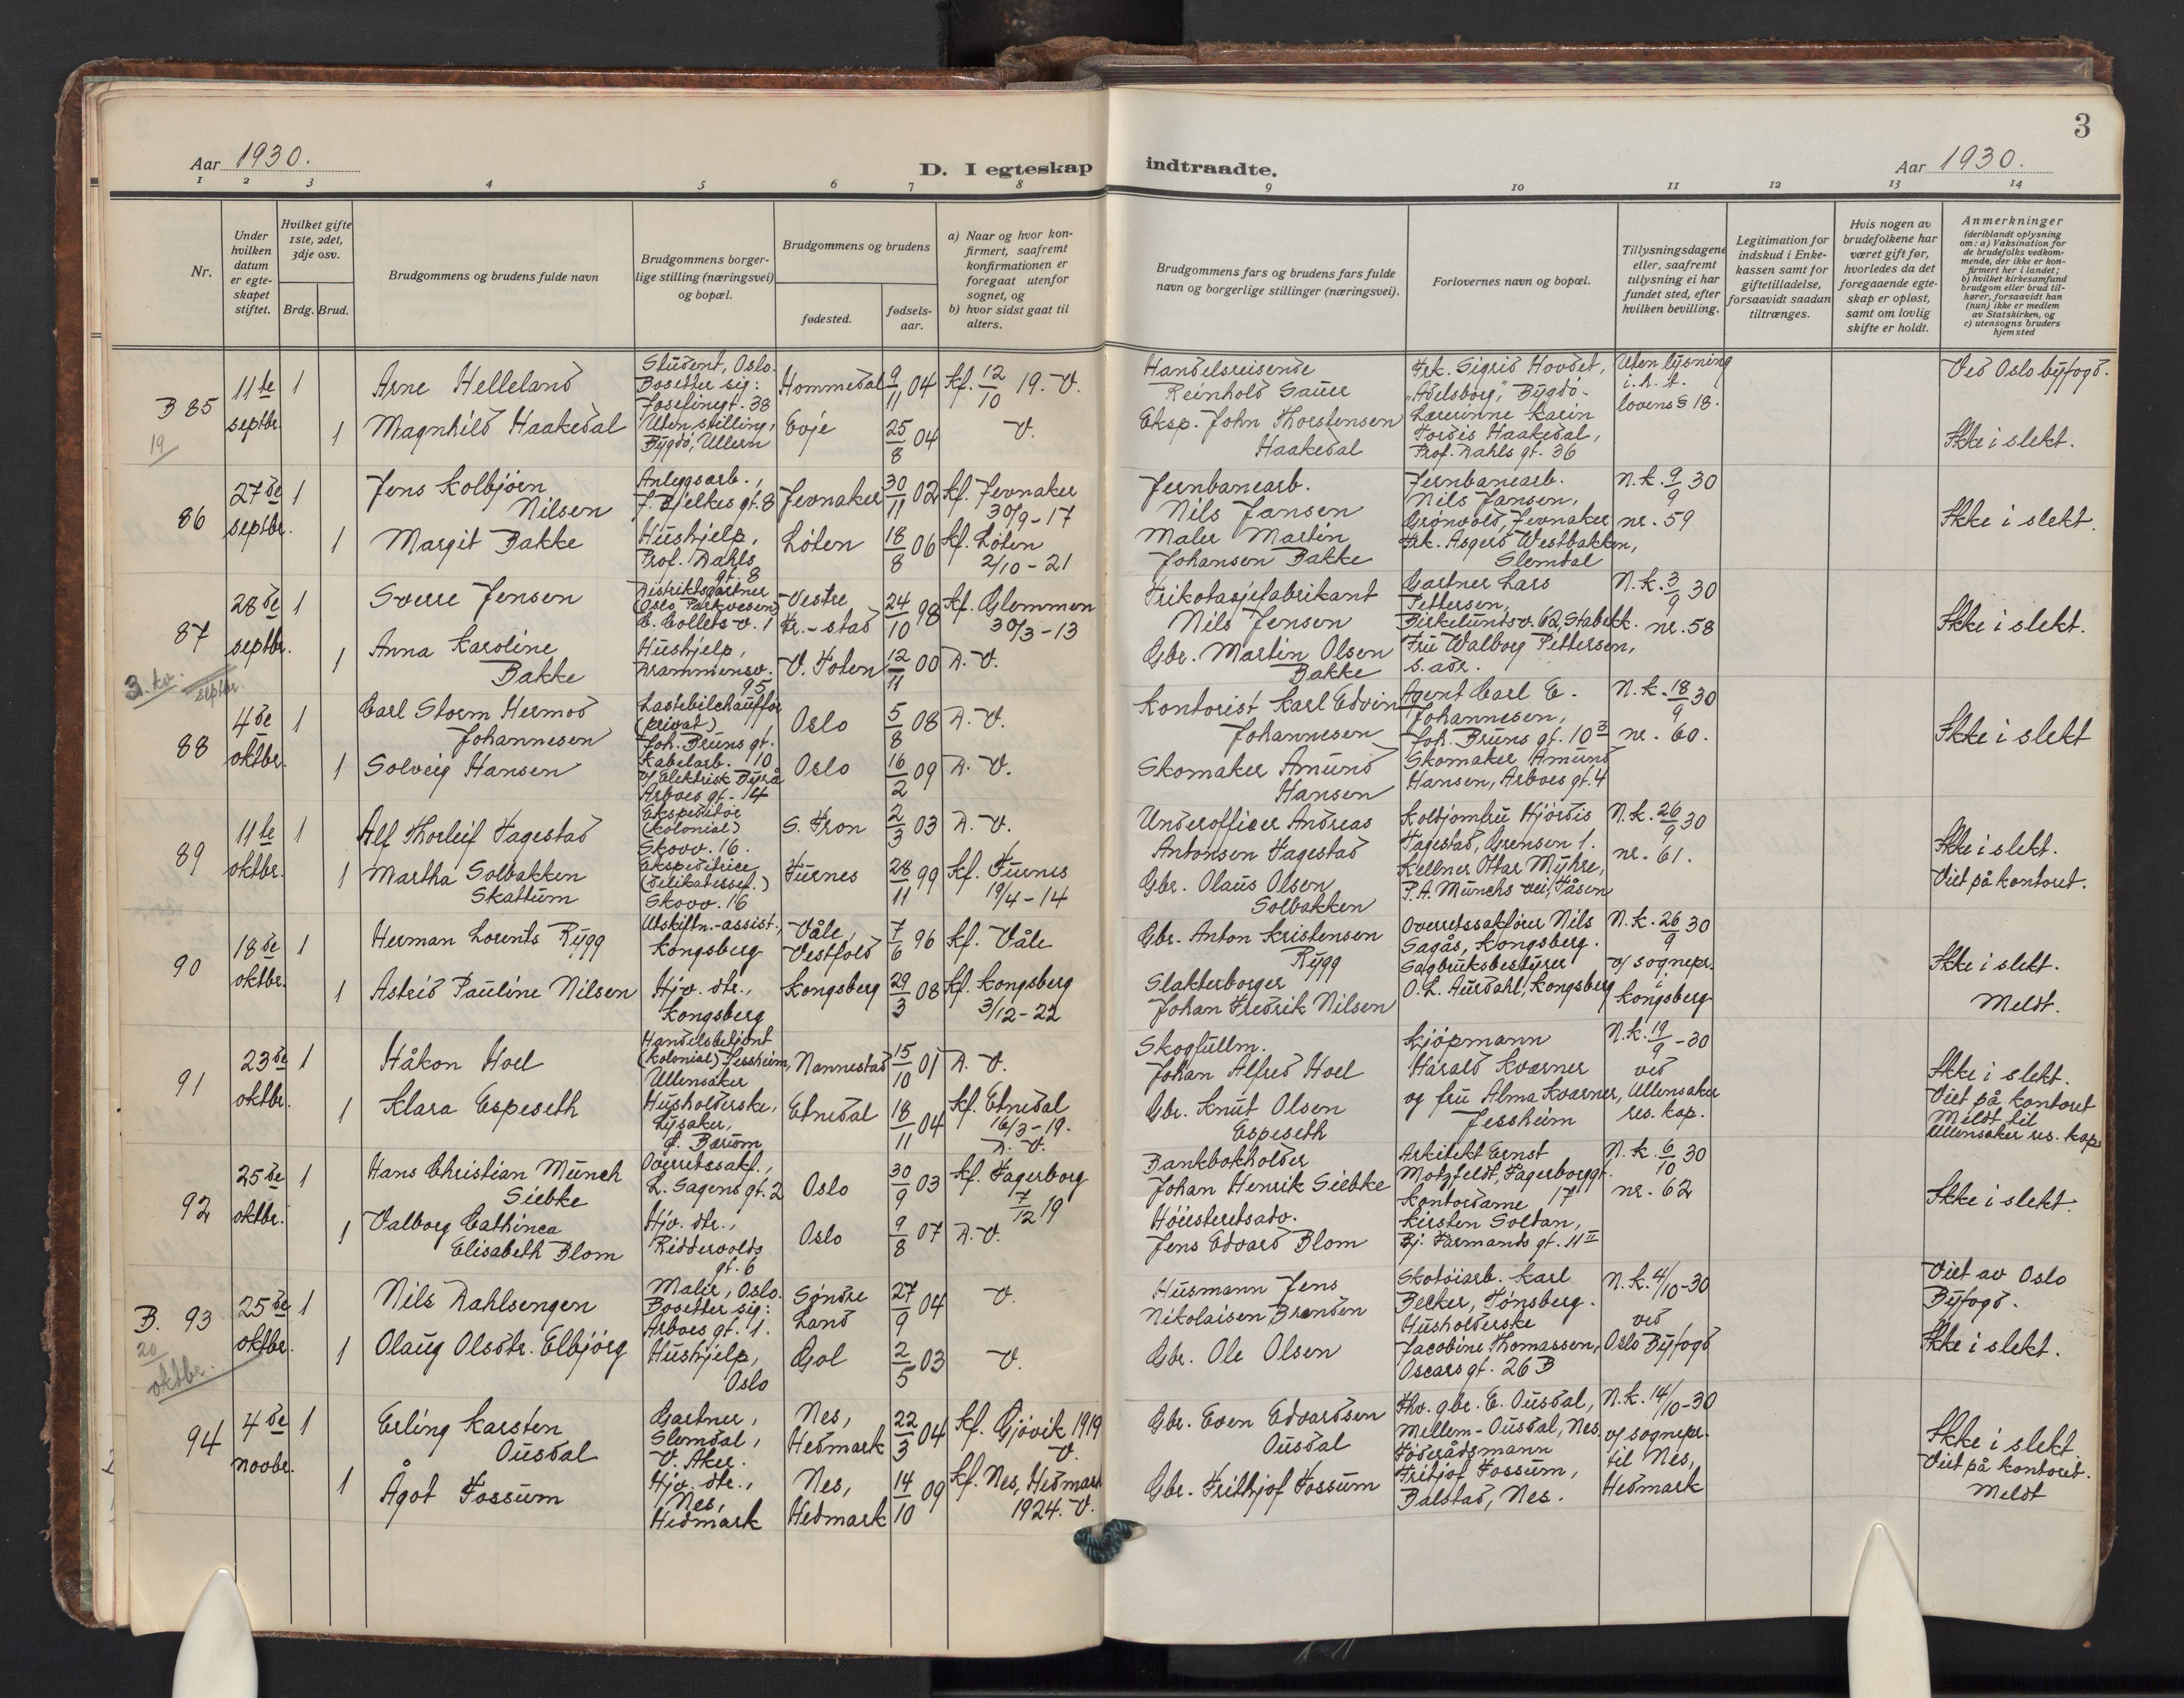 3
Aar 1930.
D. I egteskap indtraadte.
Aar 1930.
1 2 3 4 5 6 7 8 9 10 11 12 13 14
Nr.
Under hvilken datum er egte-skapet stiftet.
Hvilket gifte 1ste, 2det, 3dje osv.
Brdg. Brud.
Brudgommens og brudens fulde navn
Brudgommens borger-lige stilling (næringsvei) og bopæl.
Brudgommens og brudens
fødested.
fødsels-aar.
a) Naar og hvor kon-firmert, saafremt konfirmationen er foregaat utenfor sognet, og
b) hvor sidst gaat til alters.
Brudgommens fars og brudens fars fulde navn og borgerlige stillinger (næringsvei).
Forlovernes navn og bopæl.
Tillysningsdagene eller, saafremt tillysning ei har fundet sted, efter hvilken bevilling.
Legitimation for indskud i Enke-kassen samt for giftetilladelse, forsaavidt saadan tiltrænges.
Hvis nogen av brudefolkene har været gift før, hvorledes da det foregaaende egte-skap er opløst, samt om lovlig skifte er holdt.
Anmerkninger
(deriblandt oplysning om: a) Vaksination for de brudefolks vedkom-mende, der ikke er kon-firmert her i landet; b) hvilket kirkesamfund brudgom eller brud til-hører, forsaavidt han (hun) ikke er medlem av Statskirken, og c) utensogns bruders hjemsted
B 85
19
11te septbr.
1
Arne Helleland
Student, Oslo.
Bosetter sig:
Josefinegt. 38
Hommedal
9/11 04
Kf. 12/10 19. V.
Handelsreisende
Reinhold Sauer
Frk. Sigrid Hovdet,
"Adelsborg", Bygdø.
Uten lysning
i. h. t.
lovens § 18.
Ved Oslo byfogd.
1
Magnhild Haakedal
Uten stilling,
Bygdø, Ullern
Evje
25/8 04
V.
Eksp. John Thorstensen
Haakedal
Lærerinne Karin
Tordis Haakedal,
Prof. Dahls gt. 36
Ikke i slekt.
86
27de septbr.
1
Jens Kolbjørn
Nilsen
Anleggsarb.,
J. Bjelkes gt. 8
Jevnaker
30/11 02
Kf. Jevnaker
30/9-17
Jernbanearb.
Nils Jansen
Jernbanearb.
Nils Jansen,
Grønvold, Jevnaker
N.k. 9/9 30
nr. 59
Ikke i slekt.
1
Margit Bakke
Hushjelp,
Prof. Dahls
gt. 8
Løten
18/8 06
Kf. Løten
2/10-21
Maler Martin
Johansen Bakke
Frk. Asgerd Westbakken,
Slemdal
87
28de septbr.
1
Sverre Jensen
Distriktsgartner
(Oslo Parkvesen)
C. Collets v. 1
Vestre
Fr.-stad
24/10 98
Kf. Glemmen
30/3-13
Trikotasjefabrikant
Nils Jensen
Gartner Lars
Pettersen,
Birkelunds v. 62, Stabekk.
N.k. 3/9 30
nr. 58
Ikke i slekt.
1
Anna Karoline
Bakke
Hushjelp,
Drammensv.
95
V. Toten
12/11 00
D. V.
Gbr. Martin Olsen
Bakke
Fru Walborg Pettersen,
s. adr.
3. kv.
septbr.
88
4de oktbr.
1
Carl Storm Hermod
Johannesen
Lastebilchauffør
(privat)
Joh. Bruns gt.
10
Oslo
5/8 08
D. V.
Kontorist Karl Edvin
Johannesen
Agent Carl E.
Johannesen,
Joh. Bruns gt. 10
N.k. 18/9 30
nr. 60.
Ikke i slekt
1
Solveig Hansen
Kabelarb.
v/ Elektrisk Byrå
Arboes gt. 14
Oslo
16/2 09
D. V.
Skomaker Amund
Hansen
Skomaker Amund
Hansen, Arboes gt. 4
89
11te oktbr.
1
Alf Thorleif Fagestad
Ekspeditør
(kolonial)
Skovv. 16.
S. Fron
2/3 03
D. V.
Underofficer Andreas
Antonsen Fagestad
Koldjomfru Hjørdis
Fagestad, Grensen 1.
N.k. 26/9 30
nr. 61.
Ikke i slekt.
Viet på kontoret.
1
Martha Solbakken
Skattum
Ekspeditrice
(delikatessef.)
Skovv. 16
Furnes
28/11 99
Kf. Furnes
19/4-14
Gbr. Olaus Olsen
Solbakken
Kellner Ottar Myhre,
P. A. Munchs vei, Tåsen
90
18de oktbr.
1
Herman Lorents Rygg
Utskiftn.-assist.,
Kongsberg
Våle,
Vestfold
7/6 96
Kf. Våle
Gbr. Anton Kristensen
Rygg
Overretssakfører Nils
Sagås, Kongsberg.
N.k. 26/9 30
v/ sognepr.
i
Kongsberg
Ikke i slekt.
Meldt.
1
Astrid Pauline Nilsen
Hjv. dtr.,
Kongsberg
Kongsberg
29/3 08
Kf. Kongsberg
3/12-22
Slakterborger
Johan Fredrik Nilsen
Sagbruksbestyrer
O. L. Aurdahl, Kongsberg
91
23de oktbr.
1
Håkon Hoel
Handelsbetjent
(kolonial) Jessheim,
Ullensaker
Nannestad
15/10 01
D. V.
Skogfullm.
Johan Alfred Hoel
Kjøpmann
Harald Kværner
N.k. 19/9-30
ved
Ullensaker
res. kap.
Ikke i slekt.
Viet på kontoret
Meldt til
Ullensaker res. kap.
1
Klara Espeseth
Husholderske,
Lysaker,
Ø. Bærum
Etnedal
18/11 04
Kf. Etnedal
16/3-19.
D. V.
Gbr. Knut Olsen
Espeseth
og fru Alma Kværner,
Jessheim
92
25de oktbr.
1
Hans Christian Munch
Siebke
Overretssakf.,
L. Sagens gt. 2
Oslo
30/9 03
Kf. Fagerborg
7/12 19
Bankbokholder
Johan Henrik Siebke
Arkitekt Ernst
Motzfeldt, Fagerborggt.
17
N.k. 6/10 30
nr. 62
Ikke i slekt.
1
Valborg Cathinca
Elisabeth Blom
Hjv. dtr.,
Riddervolds
gt. 6
Oslo
9/8 07
D. V.
Høiesteretsadv.
Jens Edvard Blom
Kontordame
Kirsten Soltan,
Bj. Farmands gt. 11 II
B. 93
20
25de oktbr.
1
Nils Dahlsengen
Maler, Oslo.
Bosetter sig:
Arboes gt. 1.
Søndre
Land
27/9 04
V.
Husmann Jens
Nikolaisen Brenden
Skotøiarb. Karl
Becker, Tønsberg.
N.k. 4/10-30
ved
Oslo Byfogd
Viet av Oslo
Byfogd.
Ikke i slekt.
1
Olaug Olsdtr. Elbjørg
Hushjelp,
Oslo
Gol
2/5 03
V.
Gbr. Ole Olsen
Husholderske
Jacobine Thomassen,
Oscars gt. 26 B
oktbr.
94
4de novbr.
1
Erling Karsten
Ousdal
Gartner,
Slemdal,
V. Aker.
Nes,
Hedmark
22/3 04
Kf. Gjøvik 1919
V.
Gbr. Even Edvardsen
Ousdal
Fhv. gbr. E. Ousdal,
Mellem-Ousdal, Nes.
N.k. 14/10-30
v/ sognepr.
til Nes,
Hedmark
Ikke i slekt.
Viet på kontoret.
Meldt
1
Ågot Fossum
Hjv. dtr.,
Nes,
Hedmark
Nes,
Hedmark
14/10 09
Kf. Nes, Hedmark
1924. V.
Gbr. Frithjof Fossum
Føderådsmann
Fritjof Fossum,
Balstad, Nes.